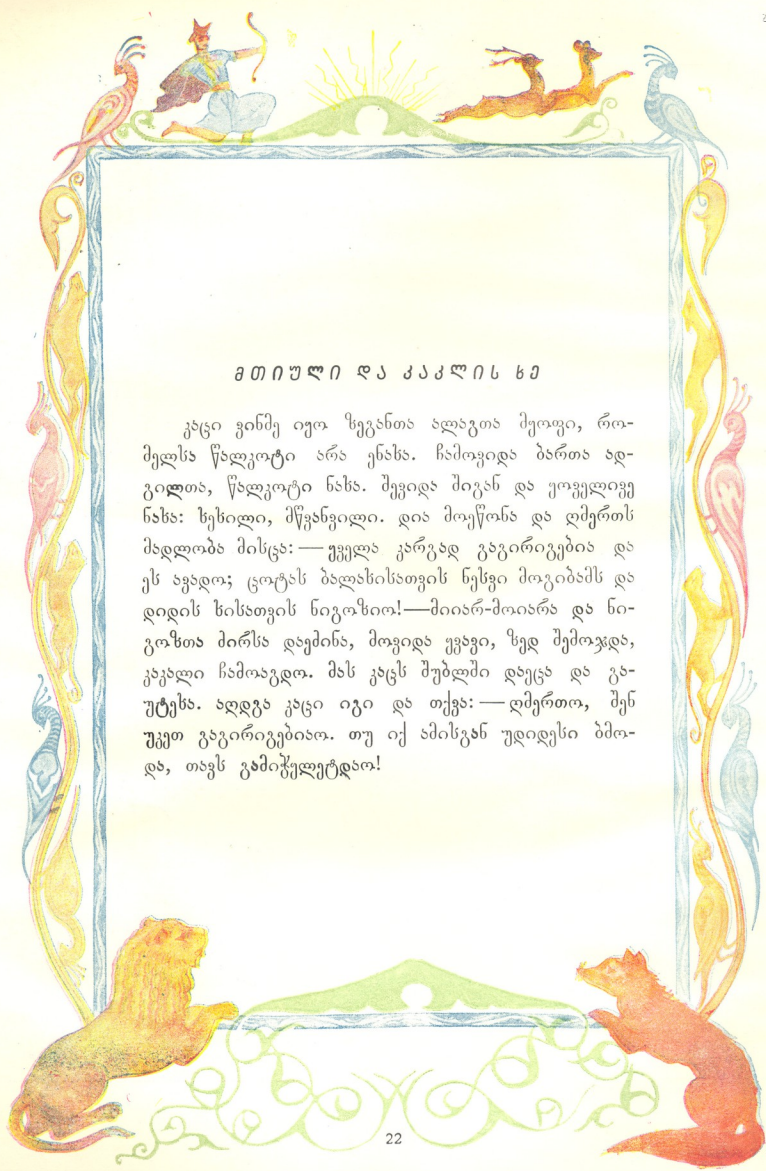 მთიული და კაკლის ხე
კაცი ვინმე იყო ზეგანთა ალაგთა მყოფი, რო-
მელსა წალკოტი არა ენახა. ჩამოვიდა ბართა ად-
გილთა, წალკოტი ნახა. შევიდა შიგან და ყოველივე
ნახა: ხეხილი, მწვანვილი. დია მოეწონა და ღმერთს
მადლობა მისცა: — ყველა კარგად გაგირიგებია და
ეს ავადო; ცოტას ბალახისათვის ნესვი მოგიბამს და
დიდის ხისათვის ნიგოზიო!—მიიარ-მოიარა და ნი-
გოზთა ძირსა დაეძინა, მოვიდა ყვავი, ზედ შემოჯდა,
კაკალი ჩამოაგდო. მას კაცს შუბლში დაეცა და გა-
უტეხა. აღდგა კაცი იგი და თქვა: — ღმერთო, შენ
უკეთ გაგირიგებიაო. თუ იქ ამისგან უდიდესი ბმო-
და, თავს გამიჭყლეტდაო!
22